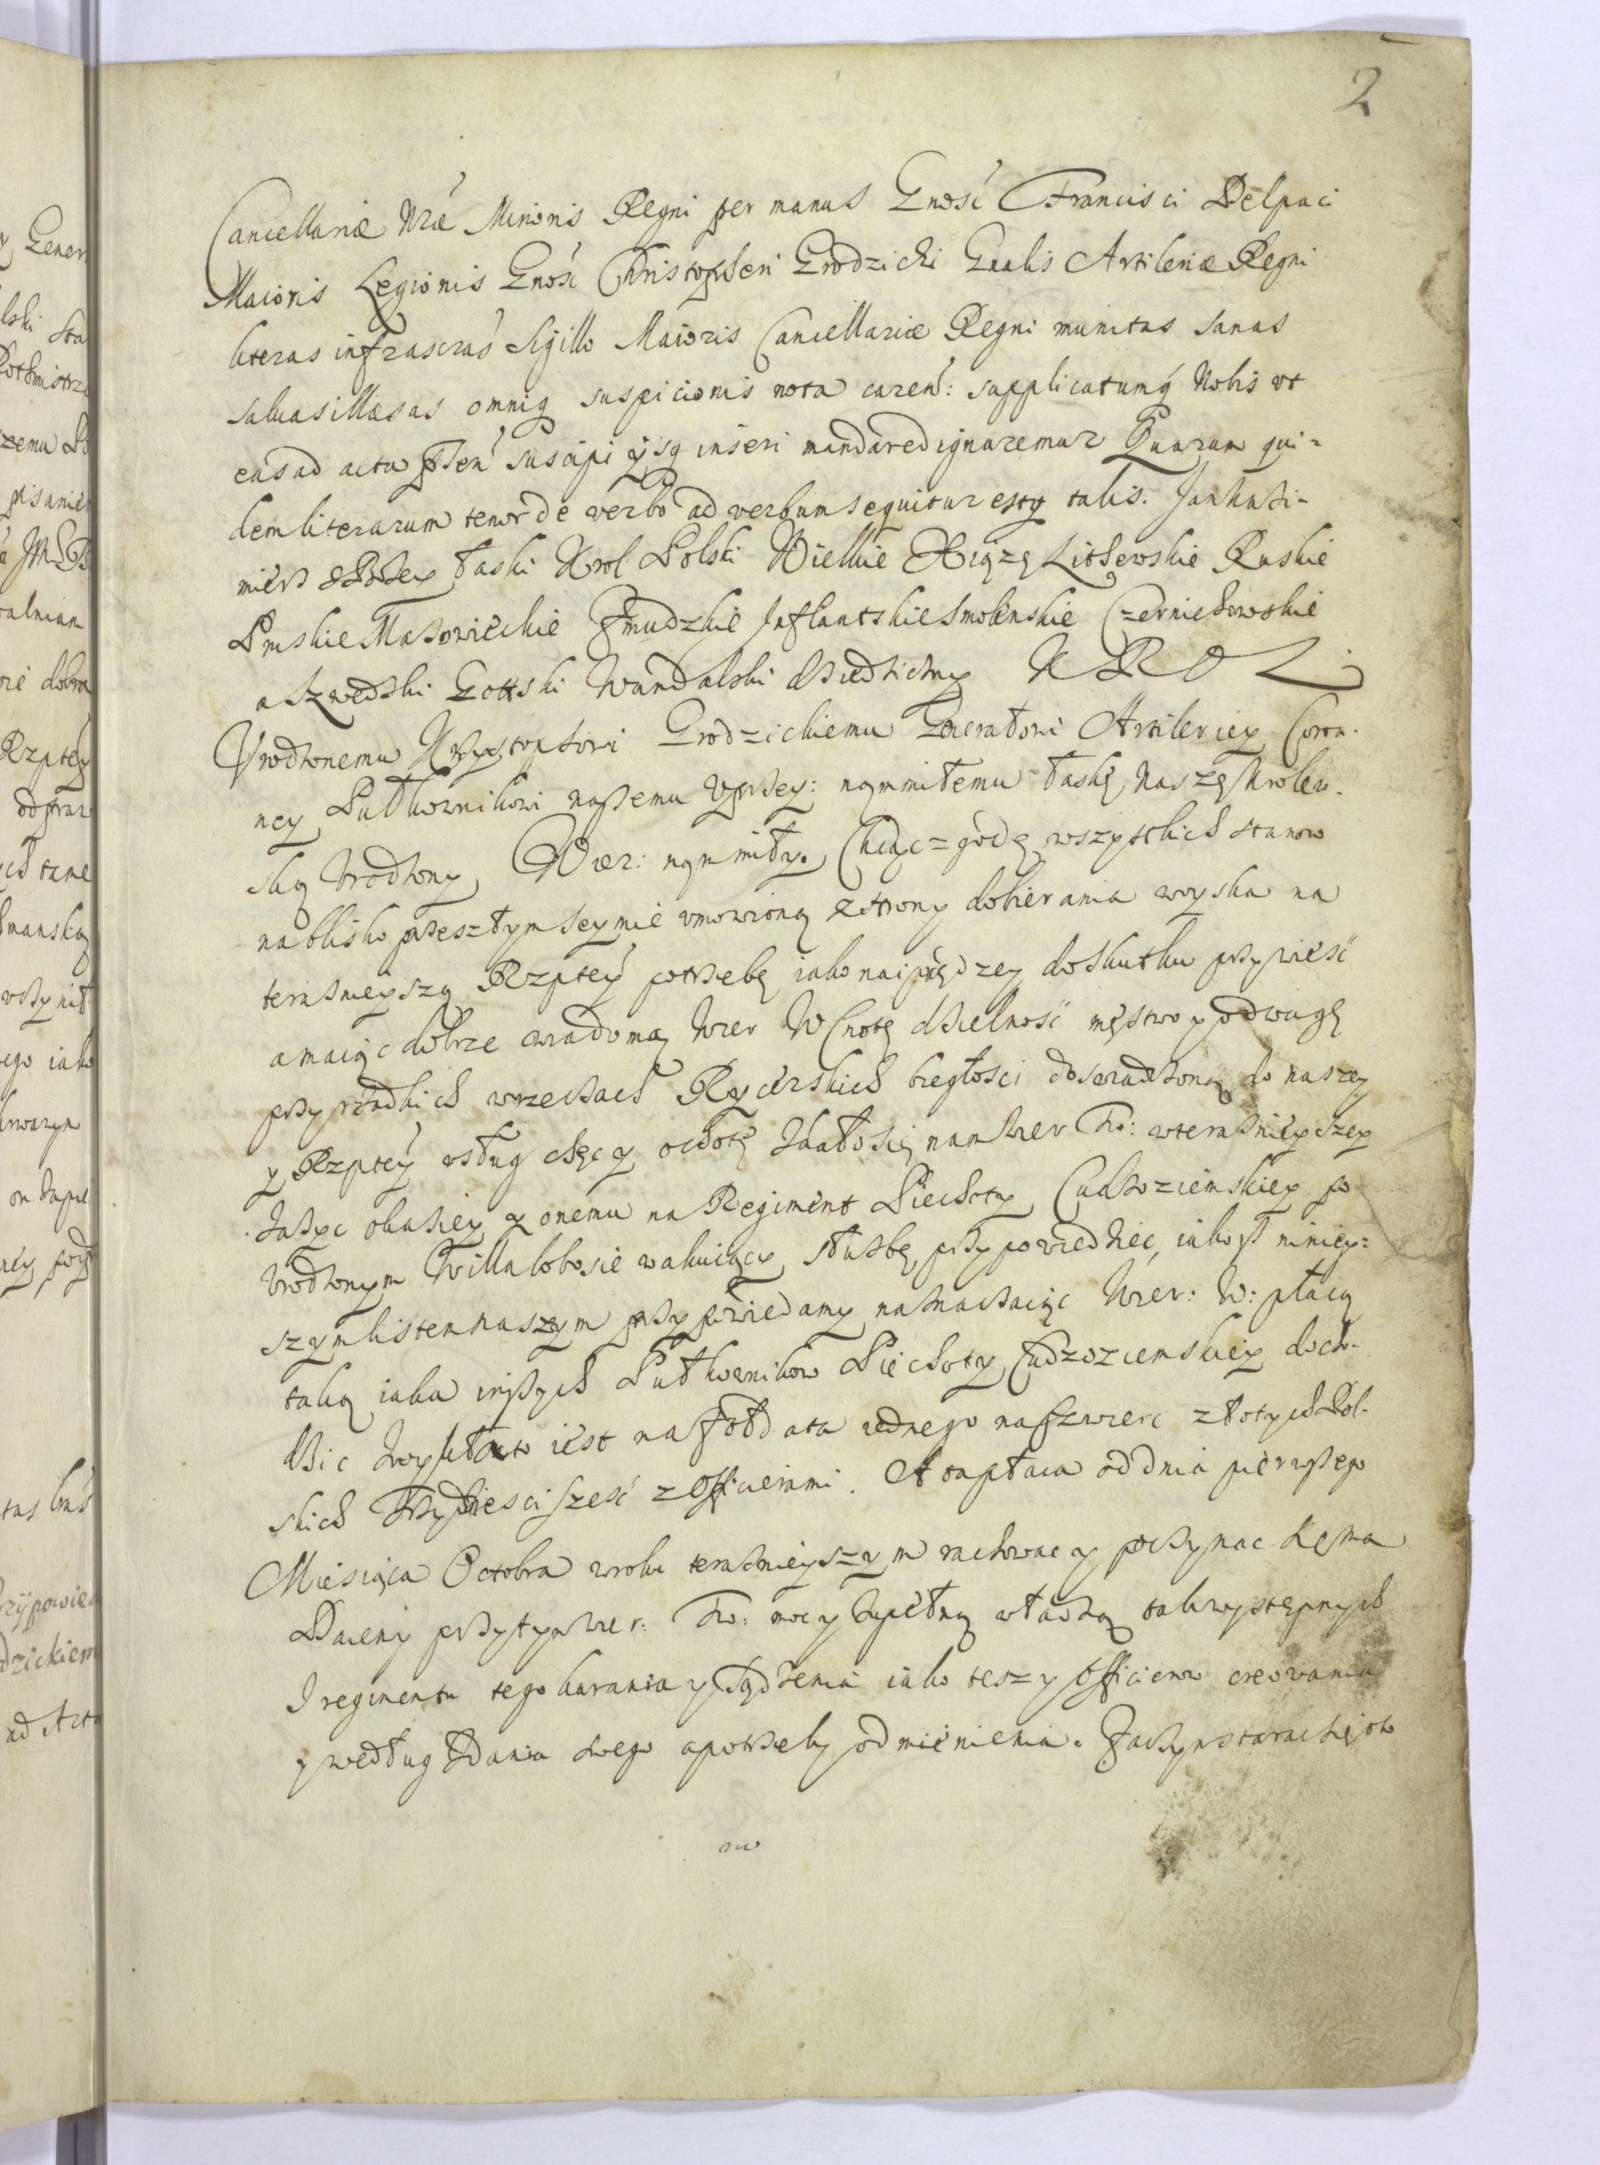 2
Cancellariæ Nræ Minoris Regni per manus Gnosi Francisci Delpaci
Maioris Legionis Gnosi Christopheri Grodzicki Gnalis Artileriæ Regni
literas infrascras Sigillo Maioris Cancellariæ Regni munitas sanas
saluas illæsas omniq suspicionis nota caren: supplicatumq Nobis vt
eas ad acta psen suscipi ijsq inseri mandare dignaremur Quarum qui-
dem literarum tenor de verbo ad verbum sequitur estq talis. Jan Kazi-
mierz z Bozey łaski Krol Polski Wielkie Xiązę Lithewskie Ruskie
Pruskie Mazowieckie Zmudzkie Inflantskie Smolenskie Czerniehowskie
a Szwedzki Gottski Wandalski dziedziczny KROL
Vrodzonemu Krzysztophowi Grodzickiemu Generałowi Artileriey Coron-
ney Pułkownikowi naszemu Vprzey: nąm miłemu łaskę Naszę Krolew-
ską Vrodzony Wier: nąm miły. Chcąc zgodę wszystkich stanow
na blisko przeszłym Seymie vmowioną z strony dobierania woyska na
terazneyszą Rzptey potrzebę iako naiprędzey do skutku przywiesć
a maiąc dobrze wiadomą Wier W Cnotę dzielność męstwo y odwagę
przy rzadkich w rzeczach Rycerskich biegłosci doswiadzoną do naszey
y Rzptey vsług chęć y ochotę Zdało się nam Wier Tw: w terazniejszey
zaszyc okaziey y onemu na Regiment Piechoty Cudzoziemskiey po
Vrodzonym Willalobosie wakuiący słuzbę przypowiedziec, iakosz niniey-
szym listem naszym przypowiedamy naznaczaiąc Wier: W: płacą
taką iaka inszych Pułkownikow Piechoty Cudzoziemskiey docho-
dzic zwykła to iest na zołdata iednego na czwierc złotych Pol-
skich Trzydziesci szesć z Officierami. A ta płaca od dnia pierwszego
Miesiąca Octobra w roku teraznieyszym rachowac y poczynac się ma
Daiemy przytym Wier: Tw: moc y zupełną władzą tak występnych
z regimentu tego karania y sądzenia iako tesz y Officierow creowania
y według zdania swego a potrzeby odmienienia. Zaczym starac się o to